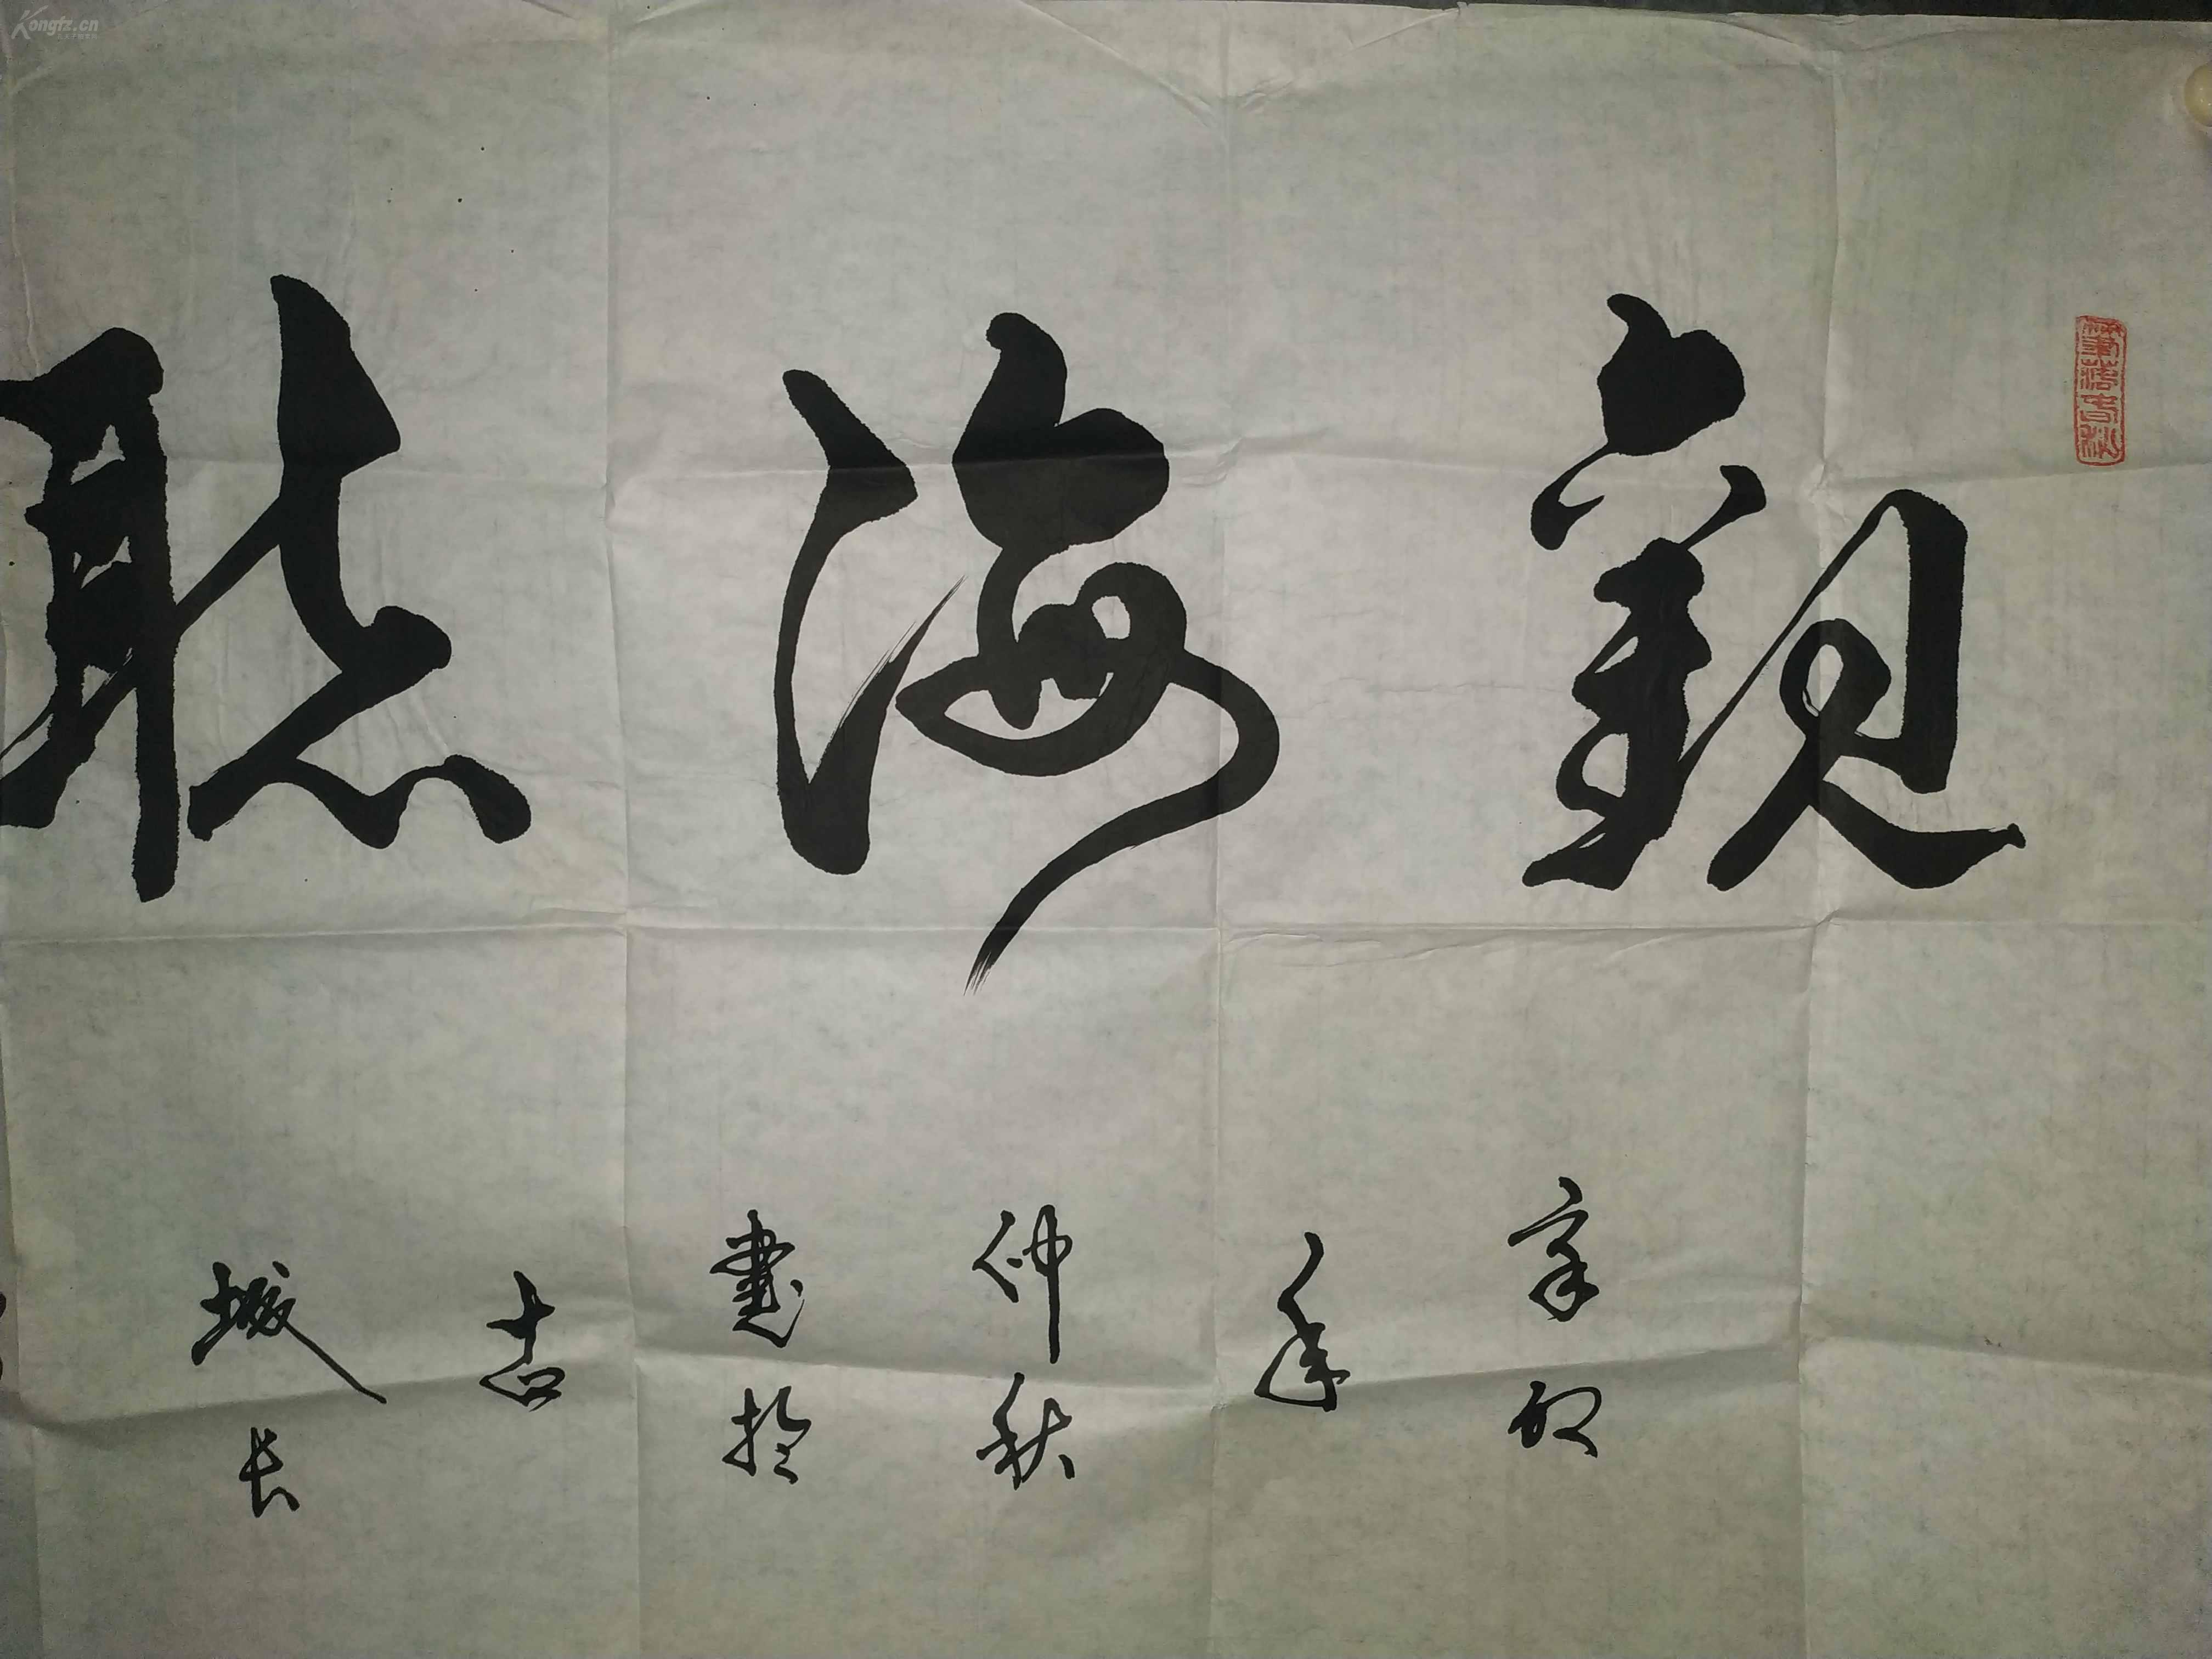 觀海聽
辛卯
年
仲秋
書於
古
城長
Kongfz.cn